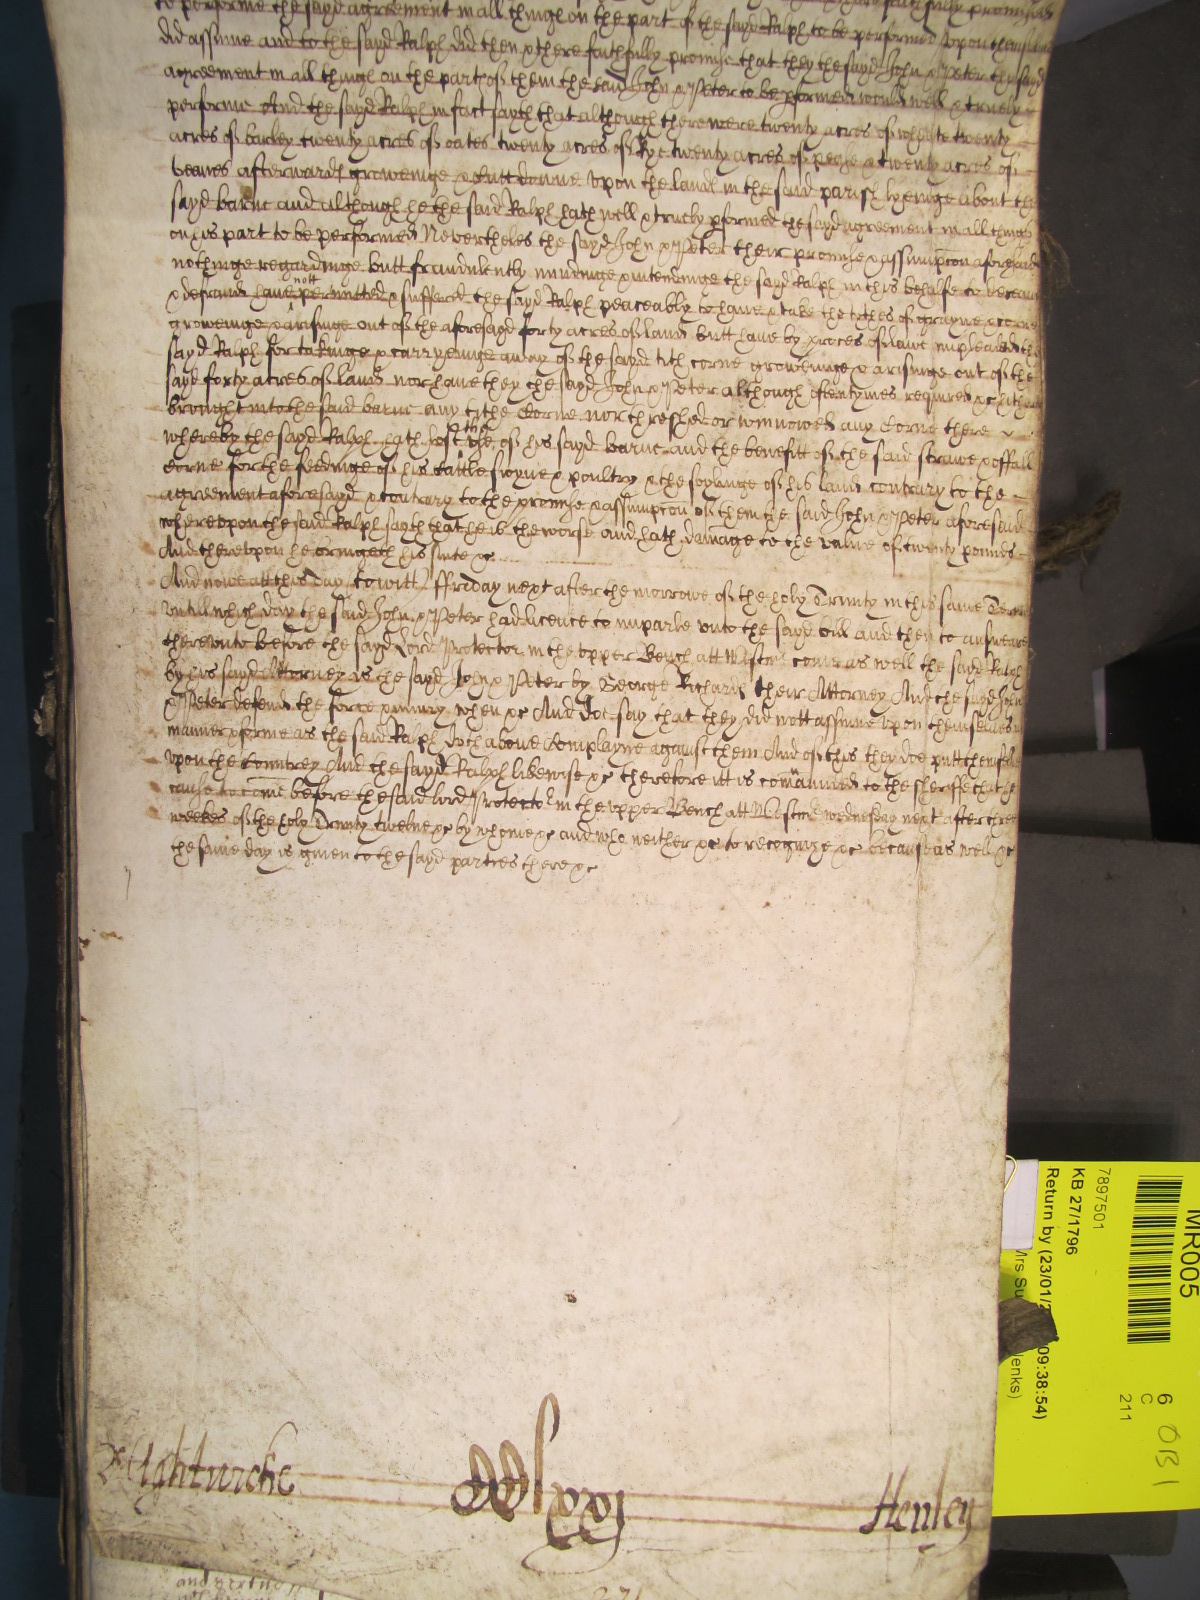 to performe the sayd agreement in all things on the part of the sayd Ralph to be performed upon themselves
did assume and to the sayd Ralph did then & there faithfully promise that they the sayd John & Peter the sayd
agreement in all things on the part of them the said John & Peter to be performed would well & truely
performe And the sayd Ralph in fact sayth that although there were twenty acres of wheate twenty
acres of barley twenty acres of oates twenty acres of Rye twenty acres of pease & twenty acres of
beanes afterwards groweinge & cutt downe upon the lands in the said parish lyeinge about the
sayd barne and although he the said Ralph hath well & truely performed the sayd agreement in all things
on his part to be performed Nevertheles the sayd John & Peter their promise & assumpcon aforesaid
nothinge regardinge butt fraudulently mindinge & intendinge the sayd Ralph in this behalfe to deceave
& defraud have nott permitted & suffered the sayd Ralph peaceably to have & take the tythes of grayne & corne
groweinge & ariseinge out of the aforesayd forty acres of land butt have by proces of lawe impleaded the
sayd Ralph for takinge & carryeinge away of the sayd tith corne groweinge & arisinge out of the
sayd forty acres of land nor have they the sayd John & Peter although oftentymes required &c hitherto
brought into the said barne any tythe Corne nor threshed or winnowed any Corne there
whereby the sayd Ralph hath lost the use of his sayd barne and the benefitt of the said strawe & offall
Corne for the feedinge of his Cattle swyne & poultry & the soylinge of his land contrary to the
agreement aforesayd & contrary to the promise & assumpcon of them the said John & Peter aforesaid
whereupon the said Ralph sayth that he is the worse and hath damage to the value of twenty pounds
And thereupon he bringeth his suite &c
And nowe att this day to witt ffriday next after the morrowe of the holy Trinity in this same Terme
untill which day the said John & Peter had licence to imparle unto the sayd bill and then to answeare
thereunto before the sayd Lord Protector in the upper Bench att Westmr come as well the sayd Ralph
by his sayd Attorney as the sayd John & Peter by George Richards their Attorney And the sayd John
& Peter defend the force & iniury when &c And doe say that they did nott assume upon themselves in
manner & forme as the said Ralph doth above Complayne against them And of this they doe putt themselves
upon the Countrey And the sayd Ralph likewise &c therefore itt is comaunded to the sheriffe that he
cause to come before the said lord Protector in the upper Bench att Westmr wednesday next after three
weekes of the holy Trinity twelve &c by whome &c and who neither &c to recognize &c because as well &c
the same day is given to the sayd parties there &c
Aghtwicke
Henley
MR005
7897501
KB 27/1796
Return by (23/01/2
09:38:54)
Mrs Su
Jenks)
6
C
211
OB1